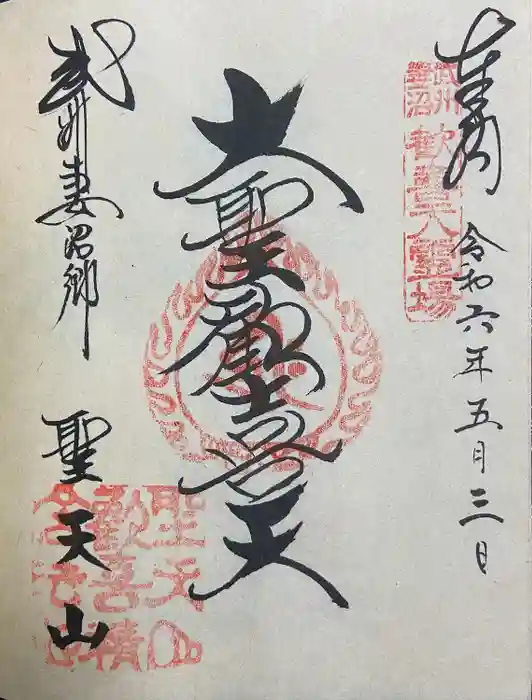 奉拝
令和六年五月三日
武州妻沼
歓喜天霊場
大聖歓喜天
武州妻沼郷
聖天山
聖天山
歓喜精